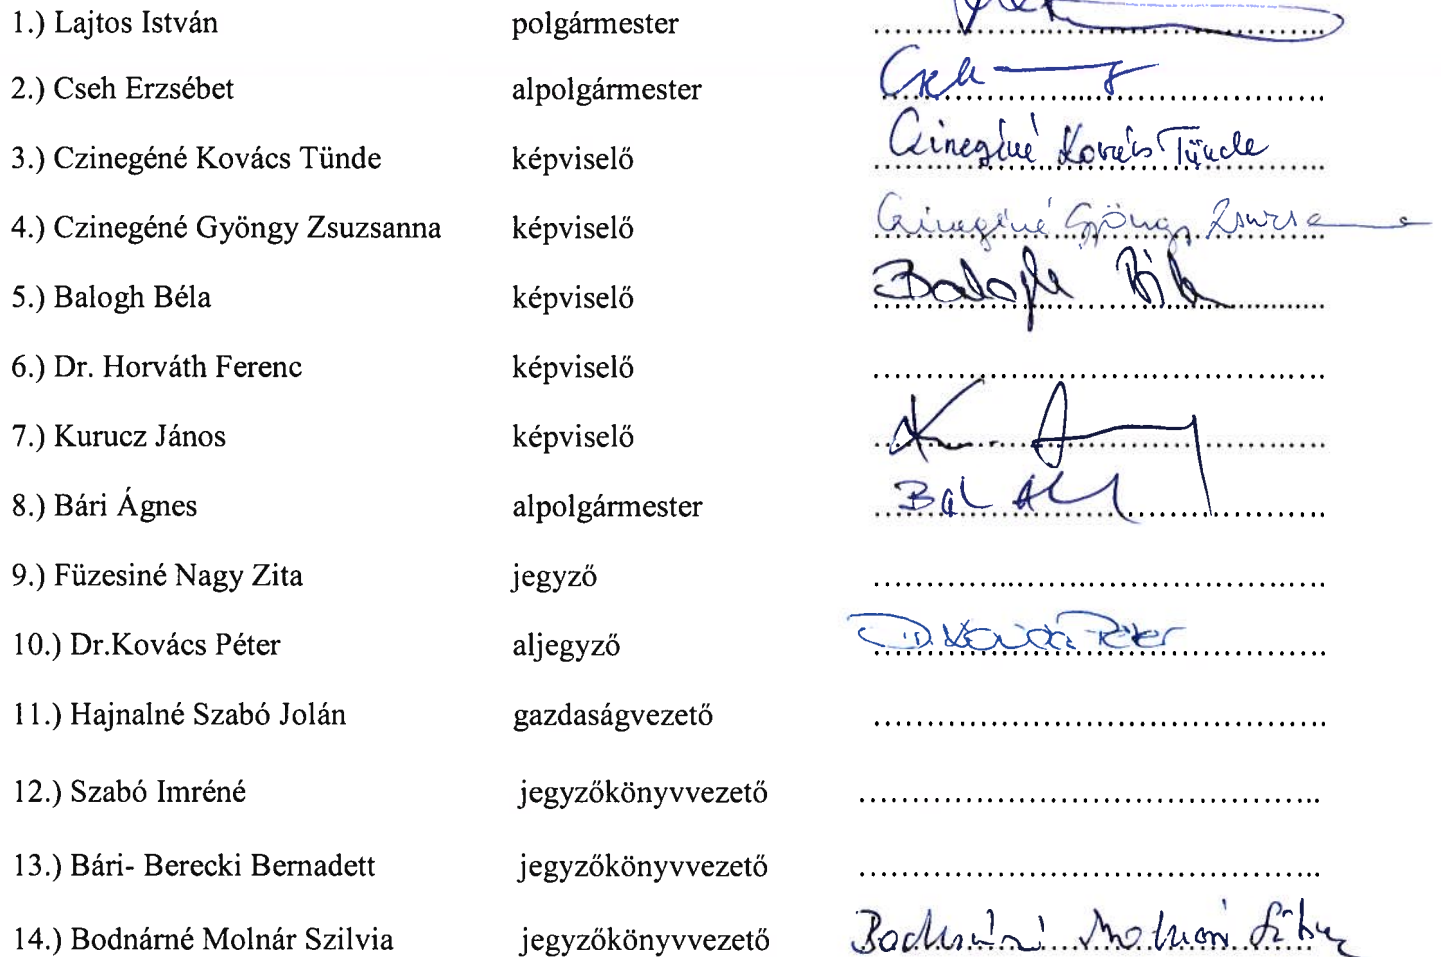 1.) Lajtos István polgármester ..........
2.) Cseh Erzsébet alpolgármester Cseh ..........
3.) Czinegéné Kovács Tünde képviselő Czinegéné Kovács Tünde
4.) Czinegéné Gyöngy Zsuzsanna képviselő Czinegéné Gyöngy Zsuzsa
5.) Balogh Béla képviselő Balogh Béla
6.) Dr. Horváth Ferenc képviselő ..........
7.) Kurucz János képviselő ..........
8.) Bári Ágnes alpolgármester ..........
9.) Füzesiné Nagy Zita jegyző ..........
10.) Dr.Kovács Péter aljegyző Dr. Kovács Péter
11.) Hajnalné Szabó Jolán gazdaságvezető ..........
12.) Szabó Imréné jegyzőkönyvvezető ..........
13.) Bári- Berecki Bernadett jegyzőkönyvvezető ..........
14.) Bodnárné Molnár Szilvia jegyzőkönyvvezető Bodnárné Molnár Szilvia